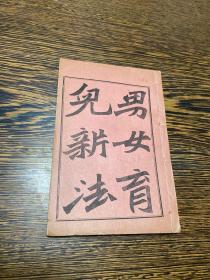 男女育
兒新法